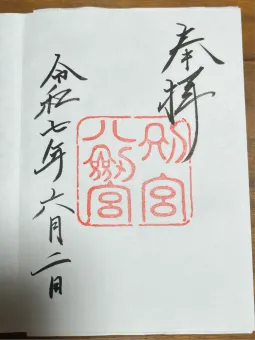 奉拝
別宮
八劔宮
令和七年六月二日